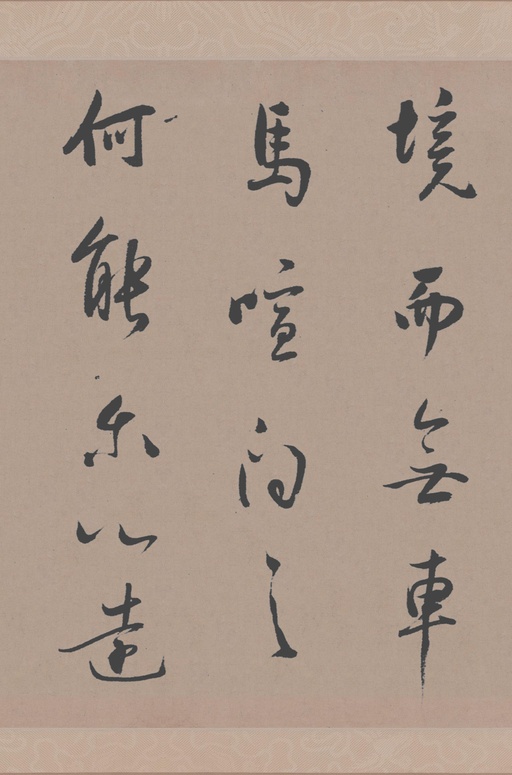 境而無車
馬喧問之
何能尔心遠